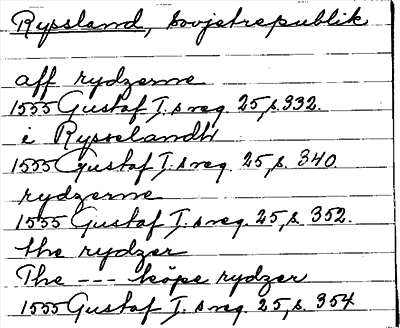 Ryssland, Sovjetrepublik
aff rydzerne
1555 Gustaf I:s reg. 25, s. 332.
i Rysselandh
1555 Gustaf I:s reg. 25, s. 340
rydzerne
1555 Gustaf I:s reg. 25, s. 352.
the rydzer
The --- köpe rydzer
1555 Gustaf I:s reg. 25, s. 354